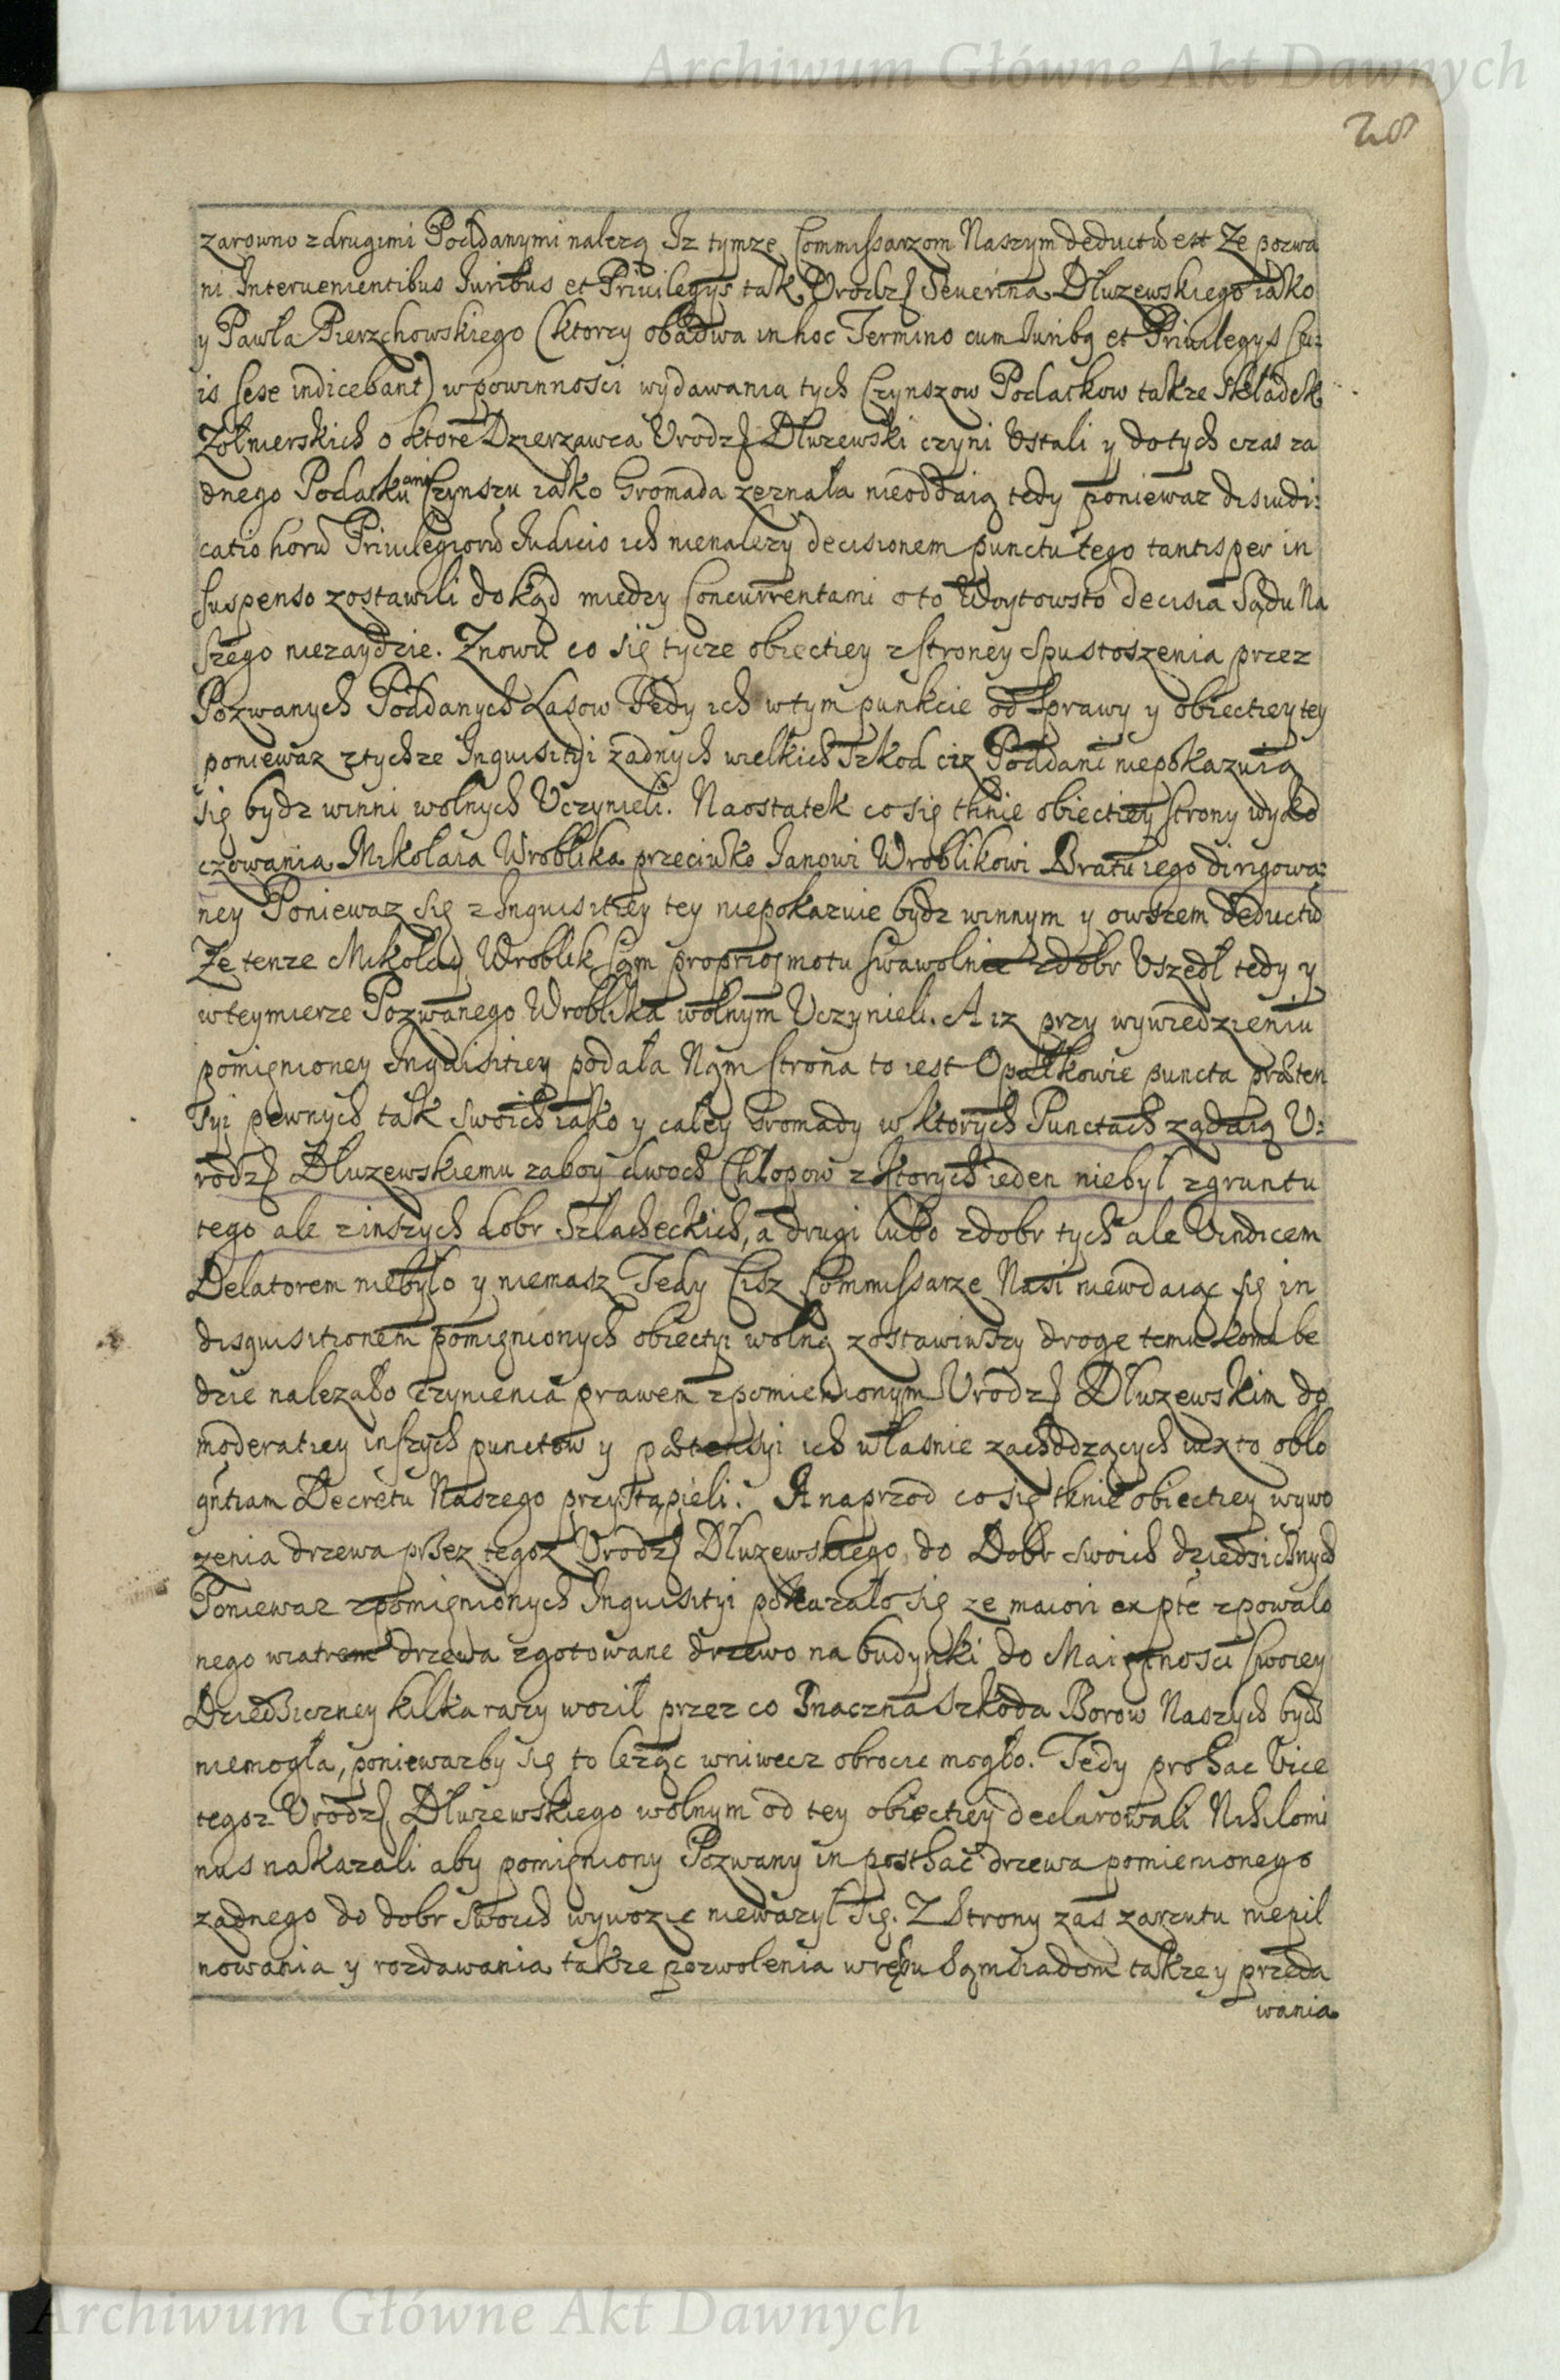 Archiwum Główne Akt Dawnych
28
zarowno z drugimi Poddanymi należą Iz tymze Commissarzom Naszym deductū est Ze pozwa
ni Interuenientibus Iuribus et Priuilegys tak Vrodz. Seuerina Dłuzewskiego iako
y Pawła Pierzchowskiego (ktorzy obadwa in hoc Termino cum Iuribq et Priuilegys su:
is sese indicebant) w powinnosci wydawania tych Czynszow Podatkow takze Składek
Zołnierskich o ktore Dzierzawca Vrodz. Dłuzewski czyni Vstali y do tych czas za
dnego Podatku ani Czynszu iako Gromada zeznała nieoddaią tedy poniewaz disiudi:
catio horū Priuilegiorū Iudicio ich nienalezy decisionem punctu tego tantisper in
suspenso zostawili dokąd miedzy Concurrentami o to Woytowsto decisia Sądu Na
szego niezaydzie. Znowu co się tycze obiectiey z stroney Spustoszenia przez
Pozwanych Poddanych Lasow Tedy ich w tym punkcie od Sprawy y obiectiey tey
poniewaz z tychze Inquisityi zadnych wielkich Szkod ciz Poddani niepokazuią
się bydz winni wolnych Vczynieli. Naostatek co się tknie obiectiey strony wyko
czowania Mikołaia Wroblika przeciwko Janowi Wroblikowi Bratu iego dirigowa:
ney Poniewaz się z Inquisitiey tey niepokazuie bydz winnym y owszem deductū
Ze tenze Mikołay Wroblik sąm proprio motu swawolnie z dobr Vszedł tedy y
w tey mierze Pozwanego Wroblika wolnym Vczynieli. A iz przy wywiedzieniu
pomięnioney Inquisitiey podała Nąm strona to iest Opałkowie puncta præten
syi pewnych tak swoich iako y całey Gromady w ktorych Punctach ządaią V:
rodz. Dłuzewskiemu zaboy dwoch Chłopow z ktorych ieden niebył z gruntu
tego ale z inszych dobr Szlacheckich, a drugi lubo z dobr tych ale Vindicem
Delatorem niebyło y niemasz Tedy Cisz Commissarze Nasi niewdaiąc się in
disquisitionem pomięnionych obiectyi wolną zostawiwszy droge temu komu be
dzie nalezało czynienia prawem z pomienionym Vrodz. Dłuzewskim do
moderatiey inszych punctow y prætensyi ich własnie zachodzących iuxta oblo
quentiam Decretu Naszego przystąpieli. A naprzod co się tknie obiectiey wywo
zenia drzewa przez tegoz Vrodz. Dłuzewskiego do Dobr swoich dziedzicznych
Poniewaz z pomięnionych Inquisityi pokazało się ze maiori ex pte z powalo
nego wiatrem drzewa zgotowane drzewo na budynki do Maiętnosci swoiey
Dziedziczney kilka razy woził przez co Znaczna szkoda Borow Naszych bydz
niemogła, poniewazby się to leząc wniwecz obrocic mogło. Tedy pro hac Vice
tegoz Vrodz. Dłuzewskiego wolnym od tey obiectiey declarowali Nihilomi
nus nakazali aby pomięniony Pozwany in posthac drzewa pomienionego
ządnego do dobr swoich wywozic niewazył się. Z Strony zas zarzutu niepil
nowania y rozdawania takze pozwolenia wrębu Sąmsiadom takze y przeda
wania
Archiwum Główne Akt Dawnych